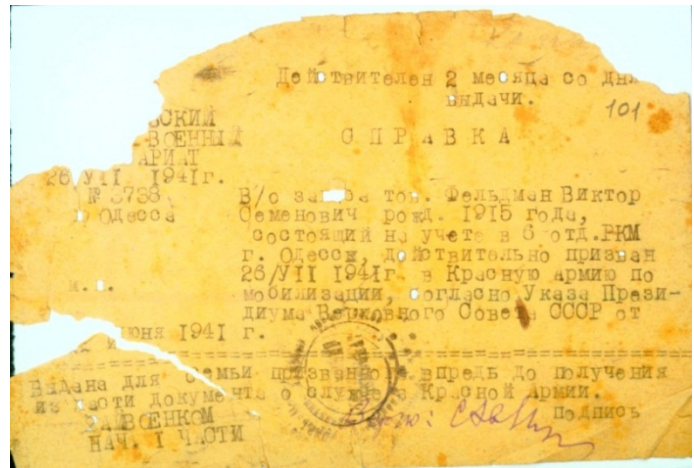 Действителен 2 месяца со дня
выдачи.
101
ВСКИЙ
ВОЕННЫЙ
АРИАТ
СПРАВКА
26/УІІ 1941г.
№ 3738
г. Одесса
В/о запаса тов. Фельдман Виктор
Семенович рожд. 1915 года,
состоящий на учете в 6 отд. РКМ
г. Одессы, действительно призван
26/УІІ 1941г. в Красную Армию по
мобилизации, согласно Указа Прези-
диума Верховного Совета СССР от
июня 1941 г.
М.
Выдана для семьи призванного впредь до получения
из части документа о службе Красной Армии.
ВОЕНКОМ
НАЧ. І ЧАСТИ
Верно:
Подпись